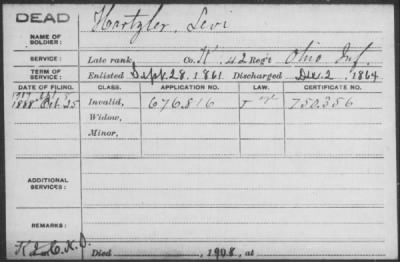 DEAD
NAME OF SOLDIER: Hartzler, Levi
SERVICE: Late rank Co. K. 42 Reg't Ohio Inf.
TERM OF SERVICE: Enlisted Sept. 28, 1861 Discharged Dec. 2, 1864
DATE OF FILING. CLASS. APPLICATION NO. LAW. CERTIFICATE NO.
1888 Oct. 25 Invalid, 676,816 750,356
Widow,
Minor,
ADDITIONAL SERVICES:
REMARKS:
Died 1908, at